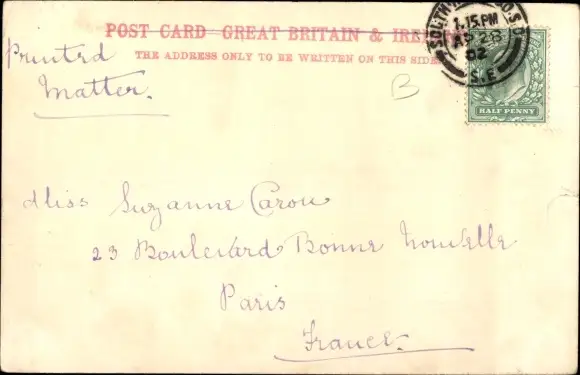 POST CARD GREAT BRITAIN & IRELAND
THE ADDRESS ONLY TO BE WRITTEN ON THIS SIDE
1.15.PM
AP 28
02
S.E
HALF PENNY
Printed
Matter.
B
Miss Suzanne Carou
23 Boulevard Bonne Nouvelle
Paris
France.